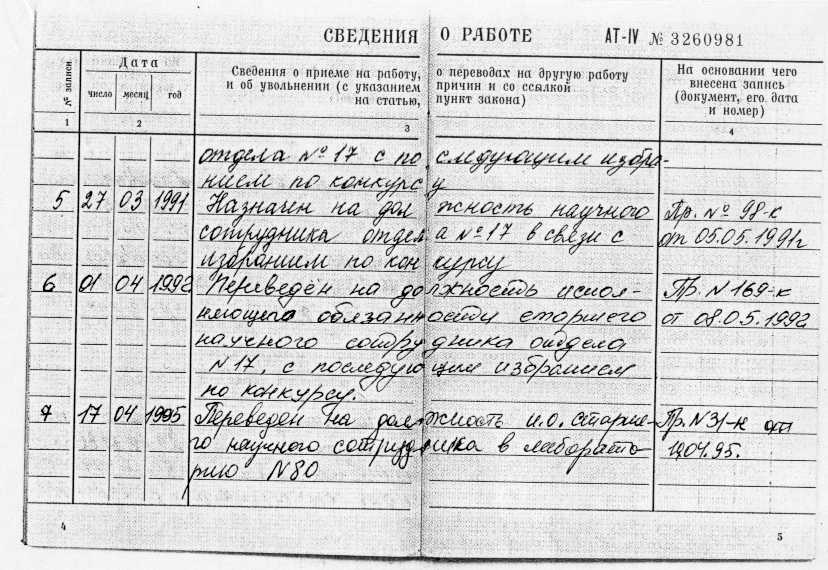 СВЕДЕНИЯ О РАБОТЕ АТ-IV № 3260981
№ записи
Дата
число месяц год
Сведения о приеме на работу, о переводах на другую работу
и об увольнении (с указанием причин и со ссылкой
на статью, пункт закона)
На основании чего
внесена запись
(документ, его дата
и номер)
1 2 3 4
отдела №17 с последующим избра-
нием по конкурсу
5 27 03 1991 Назначен на должность научного Пр. № 98-к
сотрудника отдела №17 в связи с от 05.05.1991г
избранием по конкурсу
6 01 04 1992 Переведён на должность испол- Пр. N 169-к
няющего обязанности старшего от 08.05.1992
научного сотрудника отдела
N17, с последующим избранием
по конкурсу.
7 17 04 1995 Переведен на должность и.о. старше- Пр. N31-к от
го научного сотрудника в лаборато- 04.95.
рию N80
4 5